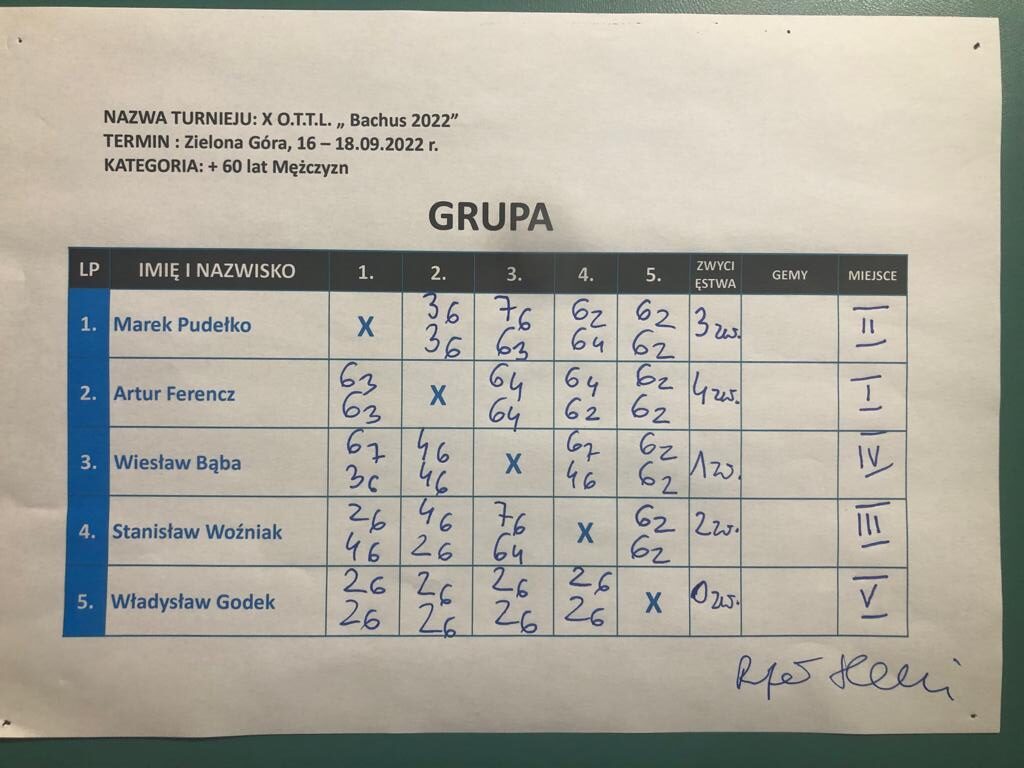 NAZWA TURNIEJU: X O.T.T.L. „ Bachus 2022”
TERMIN : Zielona Góra, 16 – 18.09.2022 r.
KATEGORIA: + 60 lat Mężczyzn
GRUPA
LP IMIĘ I NAZWISKO 1. 2. 3. 4. 5. ZWYCIĘSTWA GEMY MIEJSCE
1. Marek Pudełko X 36 36 76 63 62 64 62 62 3 zw. II
2. Artur Ferencz 63 63 X 64 64 64 62 62 62 4 zw. I
3. Wiesław Bąba 67 36 46 46 X 67 46 62 62 1 zw. IV
4. Stanisław Woźniak 26 46 46 26 76 64 X 62 62 2 zw. III
5. Władysław Godek 26 26 26 26 26 26 26 26 X 0 zw. V